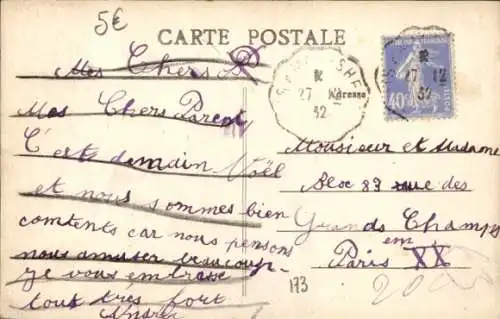 5€
CARTE POSTALE
Mes Chers P
Mes Chers Parent
C'est demain Noël
et nous sommes bien
comtents car nous pensons
nous amuser beaucoup.
Je vous embrasse
tout très fort
Adresse
27 12
32
40
27 12
32
Monsieur et Madame
Bloc 83 rue des
Grands Champs
Paris XX em
173